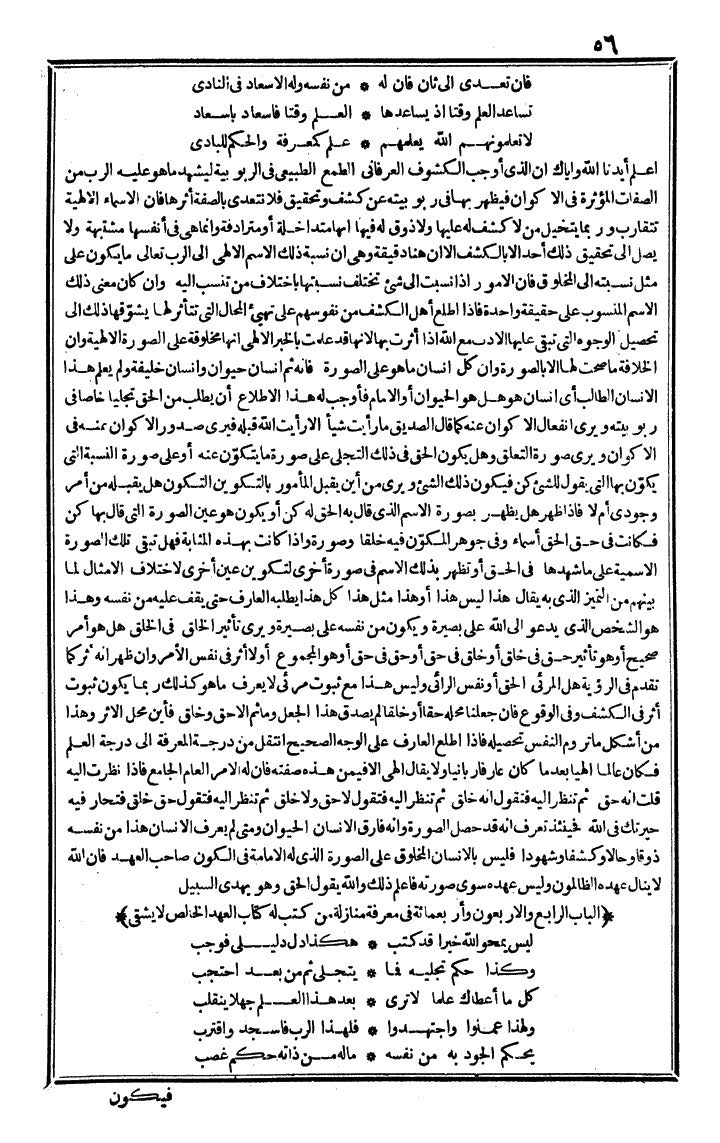 ٥٦
فان تعدى الى ثان فان له * من نفسه وله الاسعاد فى النادى
تساعد العلم وقتا اذ يساعدها * العلم وقتا فاسعاد باسعاد
لا تعلمونهم الله يعلمهم * علم كمعرفة والحكم للبادى
اعلم أيدنا الله واياك ان الذى أوجب الكشوف العرفانى الطمع الطبيعى فى الربوبية ليشهد ما هو عليه الرب من
الصفات المؤثرة فى الاكوان فيظهر بها فى ربوبيته عن كشف وتحقيق فلا تتعدى بالصفة أثرها فان الاسماء الالهية
تتقارب وربما يتخيل من لا كشف له عليها ولا ذوق له فيها انها متداخلة أو مترادفة وانما هى فى أنفسها مشتبهة ولا
يصل الى تحقيق ذلك أحد الا بالكشف الا ان هنا دقيقة وهى ان نسبة ذلك الاسم الالهى الى الرب تعالى ما يكون على
مثل نسبته الى المخلوق فان الامور اذا نسبت الى شئ تختلف نسبتها باختلاف من تنسب اليه وان كان معنى ذلك
الاسم المنسوب على حقيقة واحدة فاذا اطلع أهل الكشف من نفوسهم على تهيئ المحال التى تتأثر لها يشوقها ذلك الى
تحصيل الوجوه التى تبقى عليها الادب مع الله اذا أثرت بها لانها قد علمت بالخبر الالهى انها مخلوقة على الصورة الالهية وان
الخلافة ما صحت لها الا بالصورة وان كل انسان ما هو على الصورة فانه ثم انسان حيوان وانسان خليفة ولم يعلم هذا
الانسان الطالب أى انسان هو هل هو الحيوان أو الامام فأوجب له هذا الاطلاع أن يطلب من الحق تجليا خاصا فى
ربوبيته ويرى انفعال الاكوان عنه كما قال الصديق ما رأيت شيأ الا رأيت الله قبله فيرى صدور الاكوان عنه فى
الاكوان ويرى صورة التعلق وهل يكون الحق فى ذلك التجلى على صورة ما يتكوّن عنه أو على صورة النسبة التى
يكوّن بها التى يقول للشئ كن فيكون ذلك الشئ ويرى من أين يقبل المأمور بالتكوين التكون هل يقبله من أمر
وجودى أم لا فاذا ظهر هل يظهر بصورة الاسم الذى قال به الحق له كن أو يكون هو عين الصورة التى قال بها كن
فكانت فى حق الحق أسماء وفى جوهر المكوّن فيه خلقا وصورة واذا كانت بهذه المثابة فهل تبقى تلك الصورة
الاسمية على ما شهدها فى الحق أو تظهر بذلك الاسم فى صورة أخرى لتكوين عين أخرى لاختلاف الامثال لما
بينهم من التميز الذى به يقال هذا ليس هذا أو هذا مثل هذا كل هذا يطلبه العارف حتى يقف عليه من نفسه وهذا
هو الشخص الذى يدعو الى الله على بصيرة ويكون من نفسه على بصيرة ويرى تأثير الخلق فى الخلق هل هو أمر
صحيح أو هو تأثير حق فى خلق أو خلق فى حق أو حق فى حق أو هو المجموع أو لا أثر فى نفس الأمر وان ظهر انه ثر كما
تقدم فى الرؤية هل المرئى الحق أو نفس الرائى وليس هذا مع ثبوت مرئى لا يعرف ما هو كذلك ربما يكون ثبوت
أثر فى الكشف وفى الوقوع فان جعلنا محله حقا أو خلقا لم يصدق هذا الجعل وما ثم الا حق وخلق فأين محل الاثر وهذا
من أشكل ما تروم النفس تحصيله فاذا اطلع العارف على الوجه الصحيح انتقل من درجة المعرفة الى درجة العلم
فكان عالما الهيا بعد ما كان عارفا ربانيا ولا يقال الهى الا فيمن هذه صفته فان له الامر العام الجامع فاذا نظرت اليه
قلت انه حق ثم تنظر اليه فتقول انه خلق ثم تنظر اليه فتقول لا حق ولا خلق ثم تنظر اليه فتقول حق خلق فتحار فيه
حيرتك فى الله فحينئذ تعرف انه قد حصل الصورة وانه فارق الانسان الحيوان ومتى لم يعرف الانسان هذا من نفسه
ذوقا وحالا وكشفا وشهودا فليس بالانسان المخلوق على الصورة الذى له الامامة فى الكون صاحب العهد فان الله
لا ينال عهده الظالمون وليس عهده سوى صورته فاعلم ذلك والله يقول الحق وهو يهدى السبيل
﴿الباب الرابع والاربعون وأربعمائة فى معرفة منازلة من كتب له كتاب العهد الخالص لا يشقى﴾
ليس يمحو الله خيرا قد كتب * هكذا دل دليلى فوجب
وكذا حكم تجليه فما * يتجلى ثم من بعد احتجب
كل ما أعطاك علما لا ترى * بعد هذا العلم جهلا ينقلب
ولهذا عملوا واجتهدوا * فلهذا الرب فاسجد واقترب
يحكم الجود به من نفسه * ماله من ذاته حكم غصب
فيكون